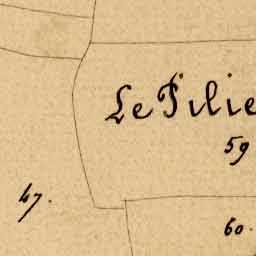 Le Pilie
59
47.
60.